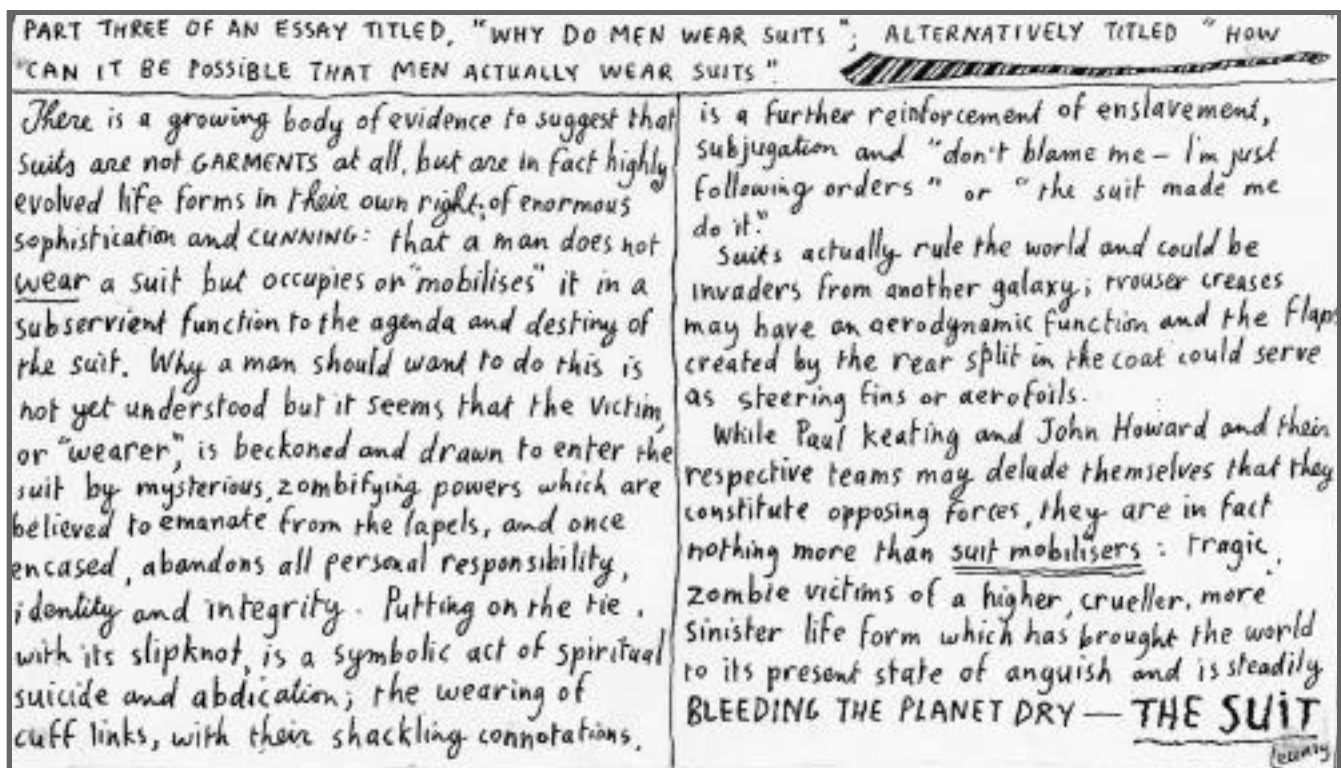 PART THREE OF AN ESSAY TITLED, "WHY DO MEN WEAR SUITS"; ALTERNATIVELY TITLED "HOW
"CAN IT BE POSSIBLE THAT MEN ACTUALLY WEAR SUITS".
There is a growing body of evidence to suggest that
suits are not GARMENTS at all, but are in fact highly
evolved life forms in their own right; of enormous
sophistication and CUNNING: that a man does not
wear a suit but occupies or "mobilises" it in a
subservient function to the agenda and destiny of
the suit. Why a man should want to do this is
not yet understood but it seems that the victim,
or "wearer", is beckoned and drawn to enter the
suit by mysterious, zombifying powers which are
believed to emanate from the lapels, and once
encased, abandons all personal responsibility,
identity and integrity. Putting on the tie,
with its slipknot, is a symbolic act of spiritual
suicide and abdication; the wearing of
cuff links, with their shackling connotations,
is a further reinforcement of enslavement,
subjugation and "don't blame me – I'm just
following orders" or "the suit made me
do it."
Suits actually rule the world and could be
invaders from another galaxy; trouser creases
may have an aerodynamic function and the flaps
created by the rear split in the coat could serve
as steering fins or aerofoils.
While Paul Keating and John Howard and their
respective teams may delude themselves that they
constitute opposing forces, they are in fact
nothing more than suit mobilisers: tragic,
zombie victims of a higher, crueller, more
sinister life form which has brought the world
to its present state of anguish and is steadily
BLEEDING THE PLANET DRY — THE SUIT
Leunig